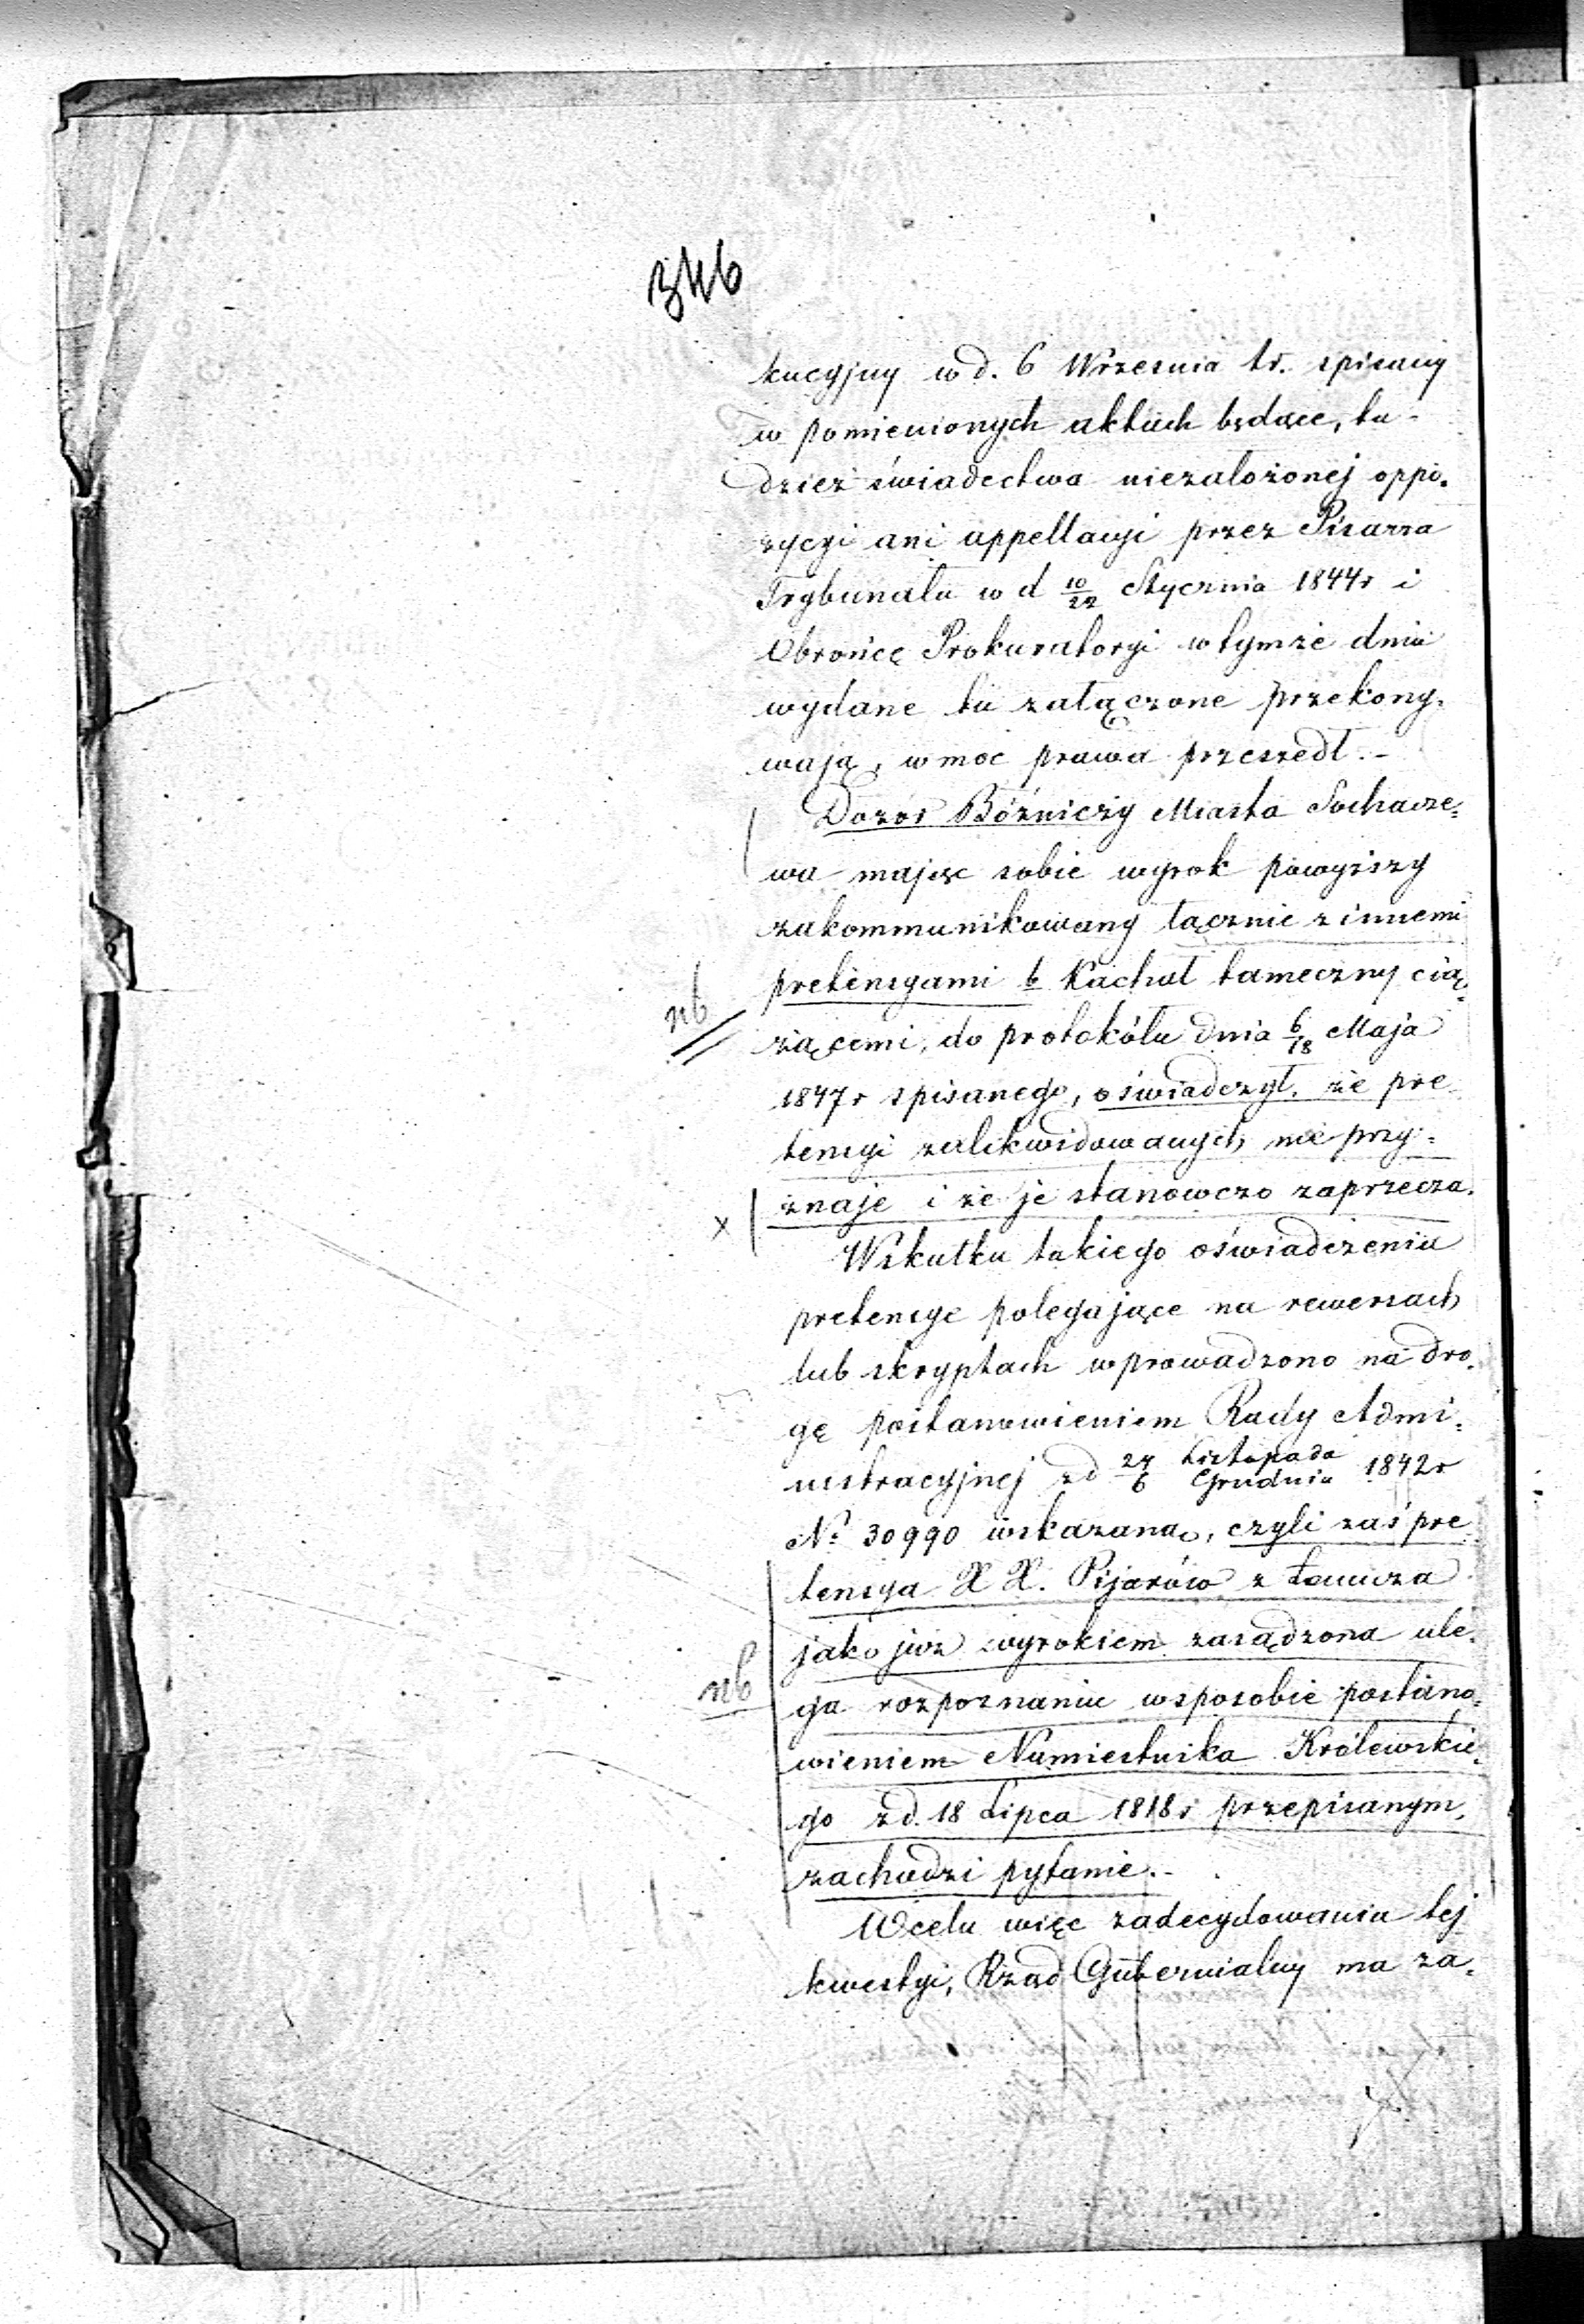 346
kucyjny w d. 6 Września t.r. spisany
w pomienionych aktach będące, tu-
dzież świadectwa niezałożonej oppo-
zycyi ani appellacyi przez Pisarza
Trybunału w d 10/22 Stycznia 1844 r i
Obrońcę Prokuratoryi w tymże dniu
wydane tu załączone przekony-
wają, w moc prawa przeszedł.-
Dozór Bóżniczy Miasta Sochacze-
wa mając sobie wyrok powyższy
zakommunikowany łącznie z innemi
pretensyami b Kachał tameczny cią-
nb
żącemi, do protokółu dnia 6/18 Maja
1847 r spisanego, oświadczył, że pre
tensyi zalikwidowanych nie przy-
znaje i że je stanowczo zaprzecza.
x
Wskutku takiego oświadczenia
pretensye polegające na rewersach
lub skryptach wprowadzono na dro-
gę postanowieniem Rady Admi-
nistracyjnej z d 24/6 Listopada/Grudnia 1842 r
No 30990 wskazaną, czyli zaś pre
tensya X X. Pijarów z Łowicza
jako już wyrokiem zasądzona ule-
nb
ga rozpoznaniu w sposobie postano-
wieniem Namiestnika Królewskie-
go z d. 18 Lipca 1818 r przepisanym,
zachodzi pytanie.-
W celu więc zadecydowania tej
kwestyi, Rząd Gubernialny ma za-